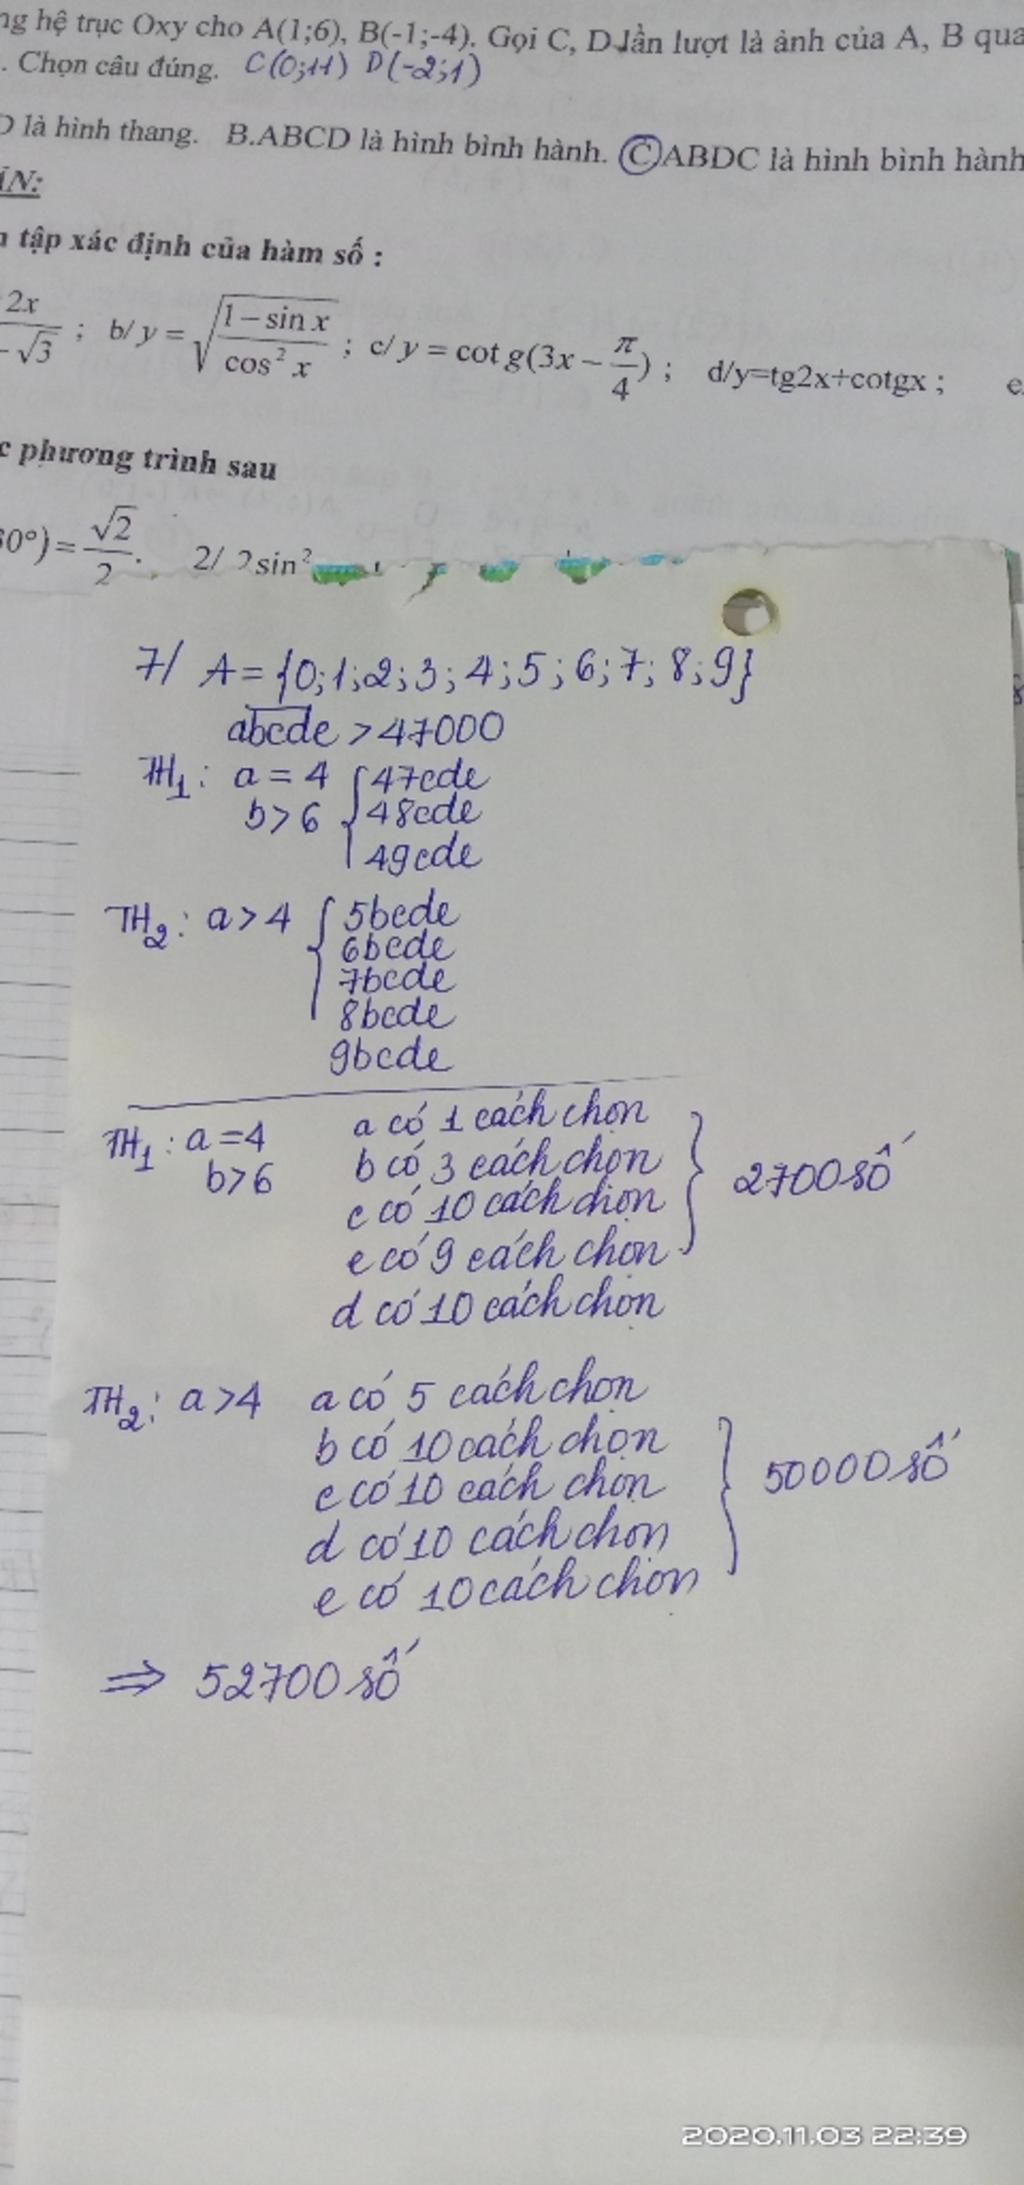 ng hệ trục Oxy cho A(1;6), B(-1;-4). Gọi C, D lần lượt là ảnh của A, B qua
. Chọn câu đúng. C(0;11) D(-2;1)
D là hình thang. B.ABCD là hình bình hành. C ABDC là hình bình hành
ẬN:
tập xác định của hàm số :
2x / -√3 ; b/ y = √((1 – sin x)/(cos² x)) ; c/ y = cot g(3x – π/4) ; d/y=tg2x+cotgx ; e
c phương trình sau
60°) = √2/2 . 2/ 2sin²
7/ A = {0;1;2;3;4;5;6;7;8;9}
abcde > 47000
TH1: a = 4 { 47cde
b > 6 48cde
49cde
TH2: a > 4 { 5bcde
6bcde
7bcde
8bcde
9bcde
TH1: a = 4 a có 1 cách chọn
b > 6 b có 3 cách chọn } 2700 số
c có 10 cách chọn
e có 9 cách chọn
d có 10 cách chọn
TH2: a > 4 a có 5 cách chọn
b có 10 cách chọn
c có 10 cách chọn } 50000 số
d có 10 cách chọn
e có 10 cách chọn
⇒ 52700 số
2020.11.03 22:39